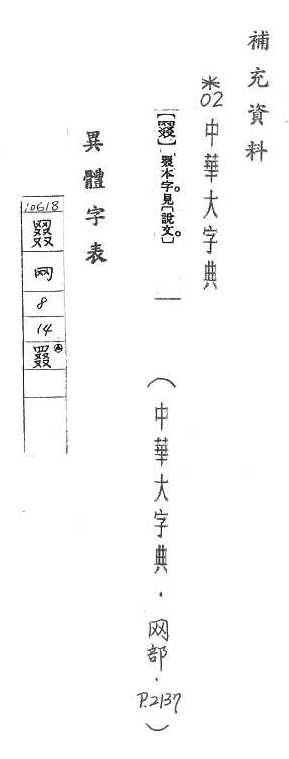 補充資料
※02 中華大字典
【】罬本字。見〔說文〕。
｜
（中華大字典．网部．P.2137）
異體字表
10618
网
8
14
罬